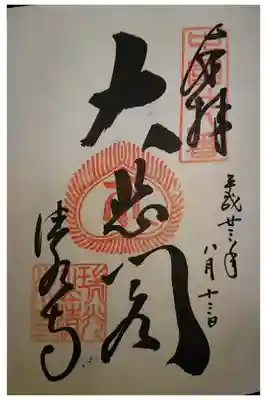 奉拝
平成廿三年
八月十三日
大悲閣
清水寺